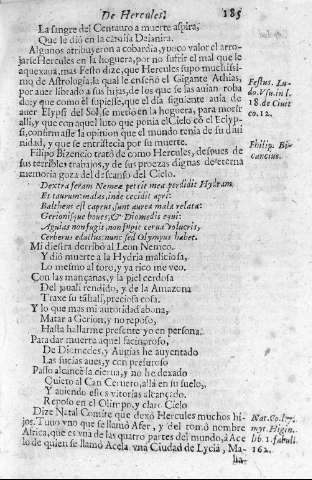 De Hercules. 185
La sangre del Centauro a muerte aspira,
Que le dió en la camisa Deianira.
Algunos atribuyeron a cobardia, y poco valor el arro-
jarse Hercules en la hoguera, por no sufrir el mal que le
aquexaua, mas Festo dize, que Hercules supo muchissi-
mo de Astrologia la qual le enseñó el Gigante Athlas,
por auer librado a sus hijas, de los que se las auian roba
do: y que como el supiesse, que el dia siguiente auia de
auer Elypsi del Sol, se metio en la hoguera, para morir
alli, y que con aquel luto que ponia el Cielo cō el Eclyp-
si, confirmasse la opinion que el mundo tenia de su diui
nidad, y que se entristecia por su muerte.
Festus. Lu-
do. Viu. in l.
18 de Ciuit
c. 12.
Filipo Bizencio trató de como Hercules, despues de
sus terribles trabajos, y de sus proezas dignas de eterna
memoria goza del descanso del Cielo.
Philip. Bi-
cancius.
Dextra feram Nemeæ petrit mea perdidit Hydram
Et taurum: malas, inde cecidit apri:
Baltheus est captus, sunt aurea mala relata:
Gerionisque boues, & Diomedis equi:
Augias non fugit, non
Cerberus eductus: nunc sed Olympus habet.
Mi diestra derribó al Leon Nemeo,
Y dió muerte a la Hydria maliciosa,
Lo mesmo al toro, y ya rico me veo.
Con las mançanas, y la piel cerdosa
Del jauali rendido, y de la Amazona
Traxe su preciosa cosa.
Y lo que mas mi autoridad abona,
Matar a Gerion, y no reposo,
Hasta hallarme presente yo en persona.
Para dar muerte aquel facineroso,
De Diomedes, y Augias he auyentado
Las sucias aues, y con presuroso
Passo alcancè la cierua, y no he dexado
Quieto al Can Ceruero, allá en su suelo,
Y auiendo estas vitorias alcançado.
Reposo en el Olimpo, y claro Cielo
Dize Natal Comite que dexó Hercules muchos hi-
jos. Tuuo vno que se llamó Afer, y del tomó nombre
Africa, que es vna de las quatro partes del mundo, à Ace
lo de quien se llamó Acela vna Ciudad de Lycia, Ma-
lia-
Nat. Co. l. 7.
myt. Higin.
lib. 1. fabul.
162.